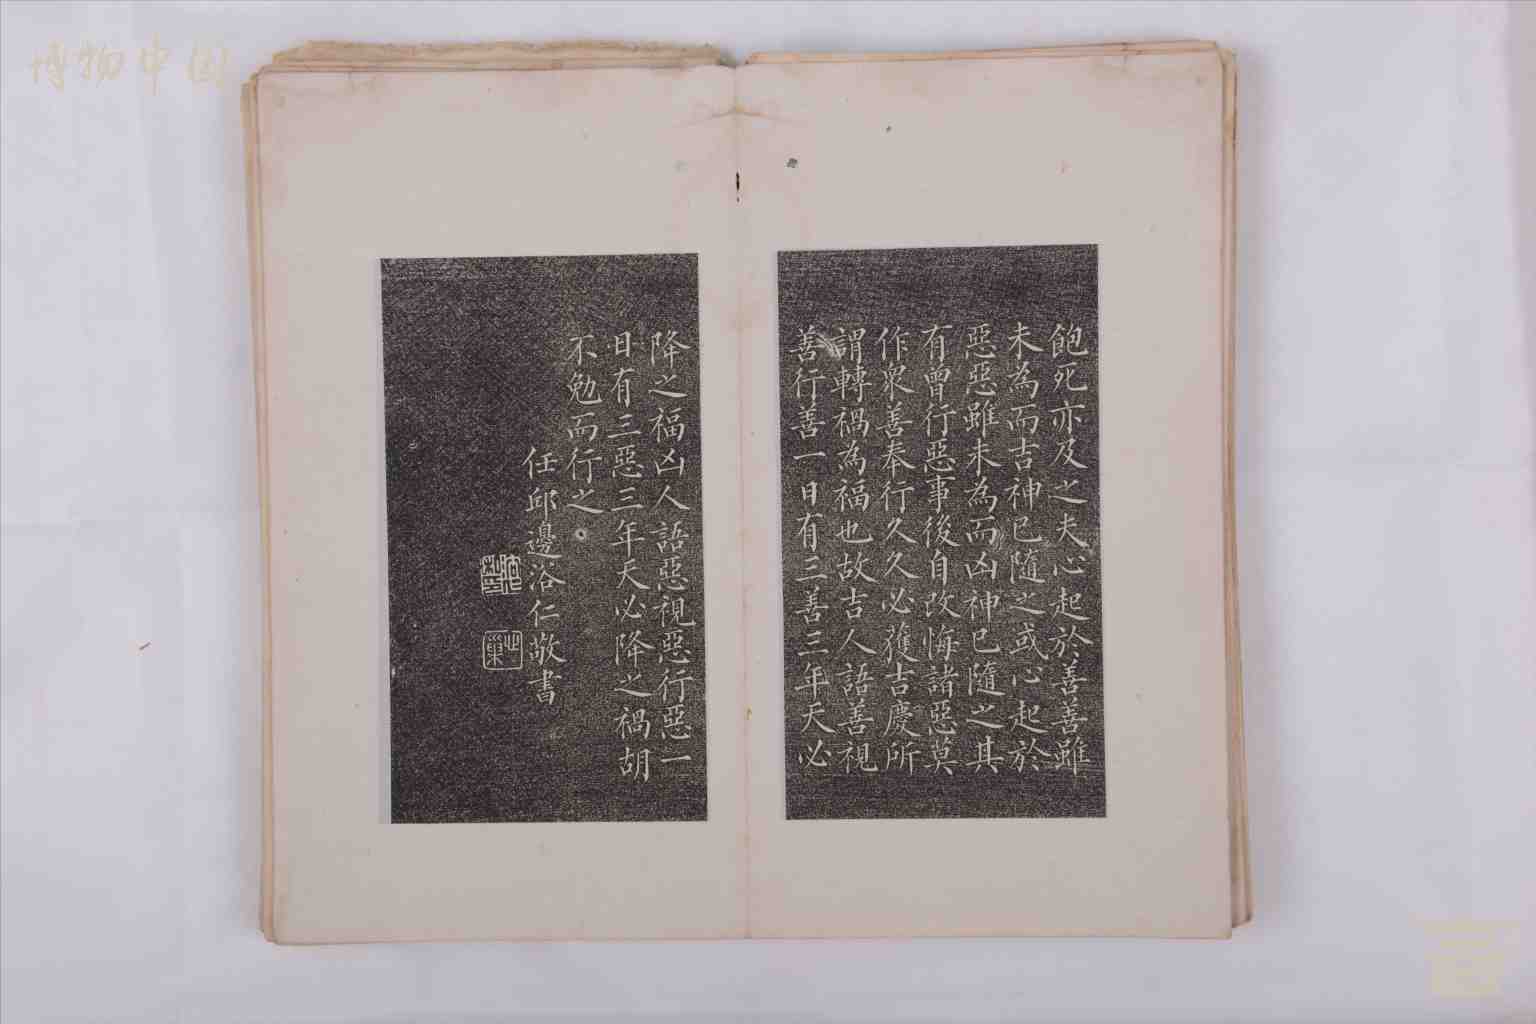 博物中国
飽死亦及之夫心起於善善雖
未為而吉神已隨之或心起於
惡惡雖未為而凶神已隨之其
有曾行惡事後自改悔諸惡莫
作衆善奉行久久必獲吉慶所
謂轉禍為福也故吉人語善視
善行善一日有三善三年天必
降之福凶人語惡視惡行惡一
日有三惡三年天必降之禍胡
不勉而行之
任邱邊浴仁敬書